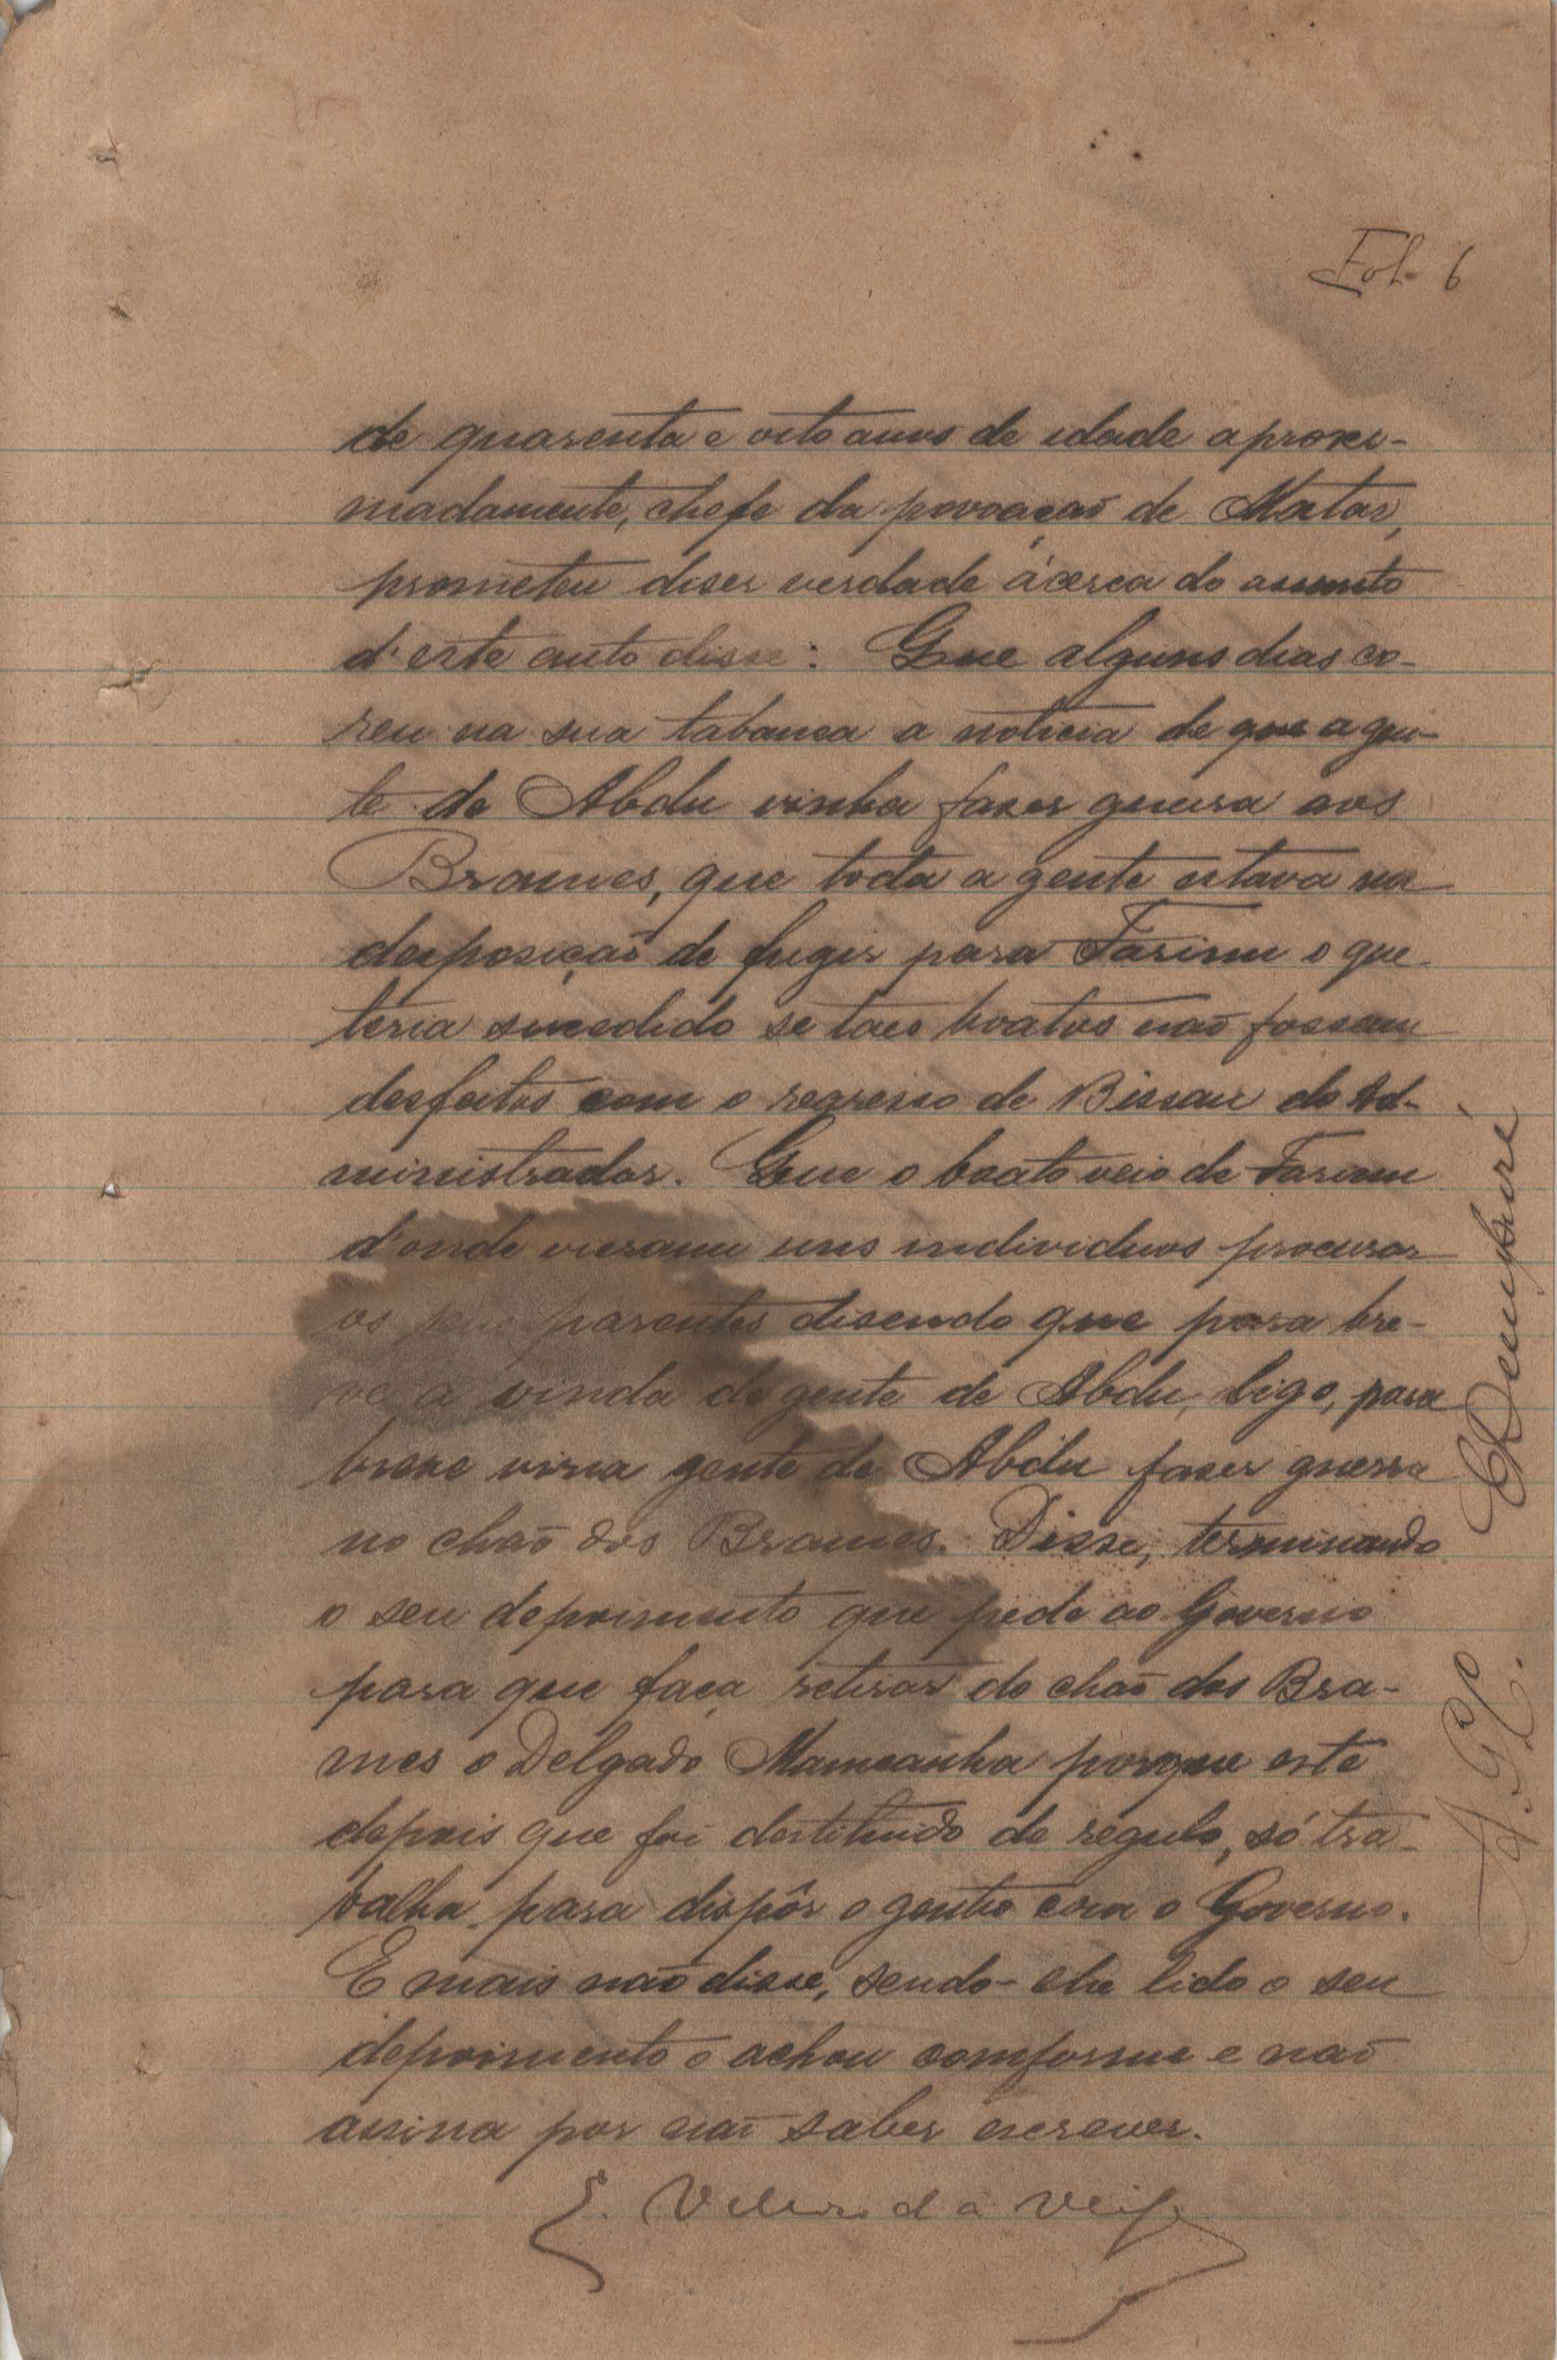 Fol. 6
de quarenta e oito anos de idade aproxi-
madamente, chefe da povoação de Matar,
prometeu diser verdade ácerca do assunto
d'este auto disse: Que alguns dias co-
reu na sua tabanca a noticia de que a gen-
te de Abdu vinha faser guerra aos
Brames, que toda a gente estava na
desposição de fugir para Farim o que
teria sucedido se taes boatos não fossem
desfeitos com o regresso de Bissau do Ad-
ministrador. Que o boato veio de Farim
d'onde vieram uns individuos procurar
os seus parentes disendo que para bre-
ve a vinda de gente de Abdu, digo, para
breve viria gente de Abdu faser guerra
no chão dos Brames. Disse, terminando
o seu depoimento que pede ao Governo
para que faça retirar do chão dos Bra-
mes o Delgado Mamcanha porque este
depois que foi destituido de regulo, só tra-
balha para dispôr o gentio com o Governo.
E mais não disse, sendo-lhe lido o seu
depoimento o achou comforme e não
assina por não saber escrever.
E. da Veiga